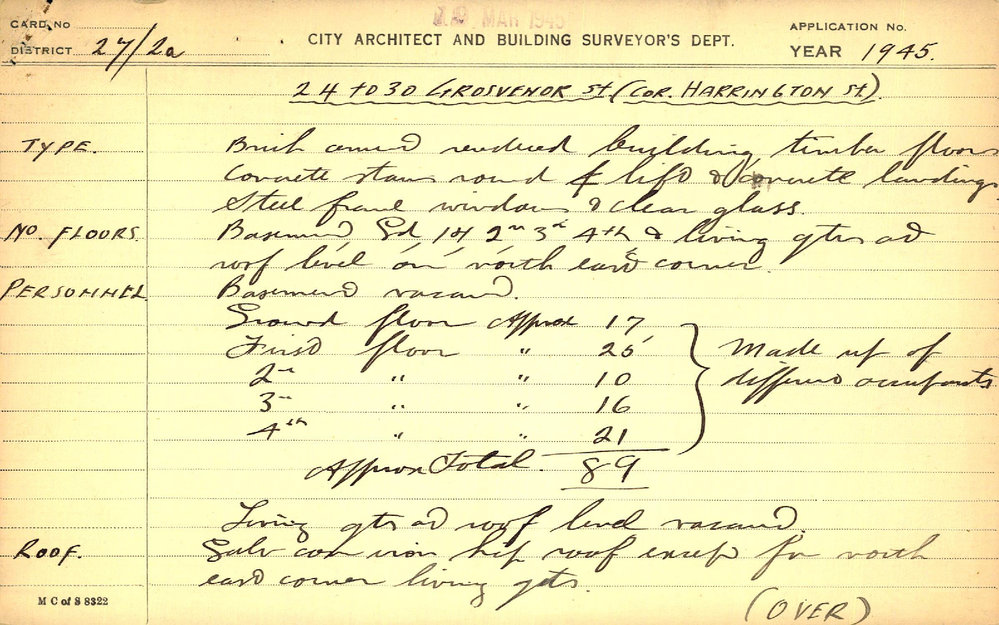 MAR 1945
CARD No
DISTRICT 27/2a
CITY ARCHITECT AND BUILDING SURVEYOR'S DEPT.
APPLICATION No.
YEAR 1945.
24 TO 30 GROSVENOR St (COR. HARRINGTON St.)
TYPE. Brick cement rendered building, timber floors
Concrete stairs round lift & concrete landings
Steel frame windows & clear glass.
No. FLOORS. Basement, Gd, 1st, 2nd, 3rd, 4th & living qtrs at
roof level on north east corner.
PERSONNEL Basement vacant.
Ground floor Approx 17
First floor " 25
2nd " " 10
3rd " " 16
4th " " 21
Made up of
different occupants
Approx Total. 89
Living qtrs at roof level vacant.
ROOF. Galv corr iron hip roof except for north
east corner living qrts.
(OVER)
M C of S 8322